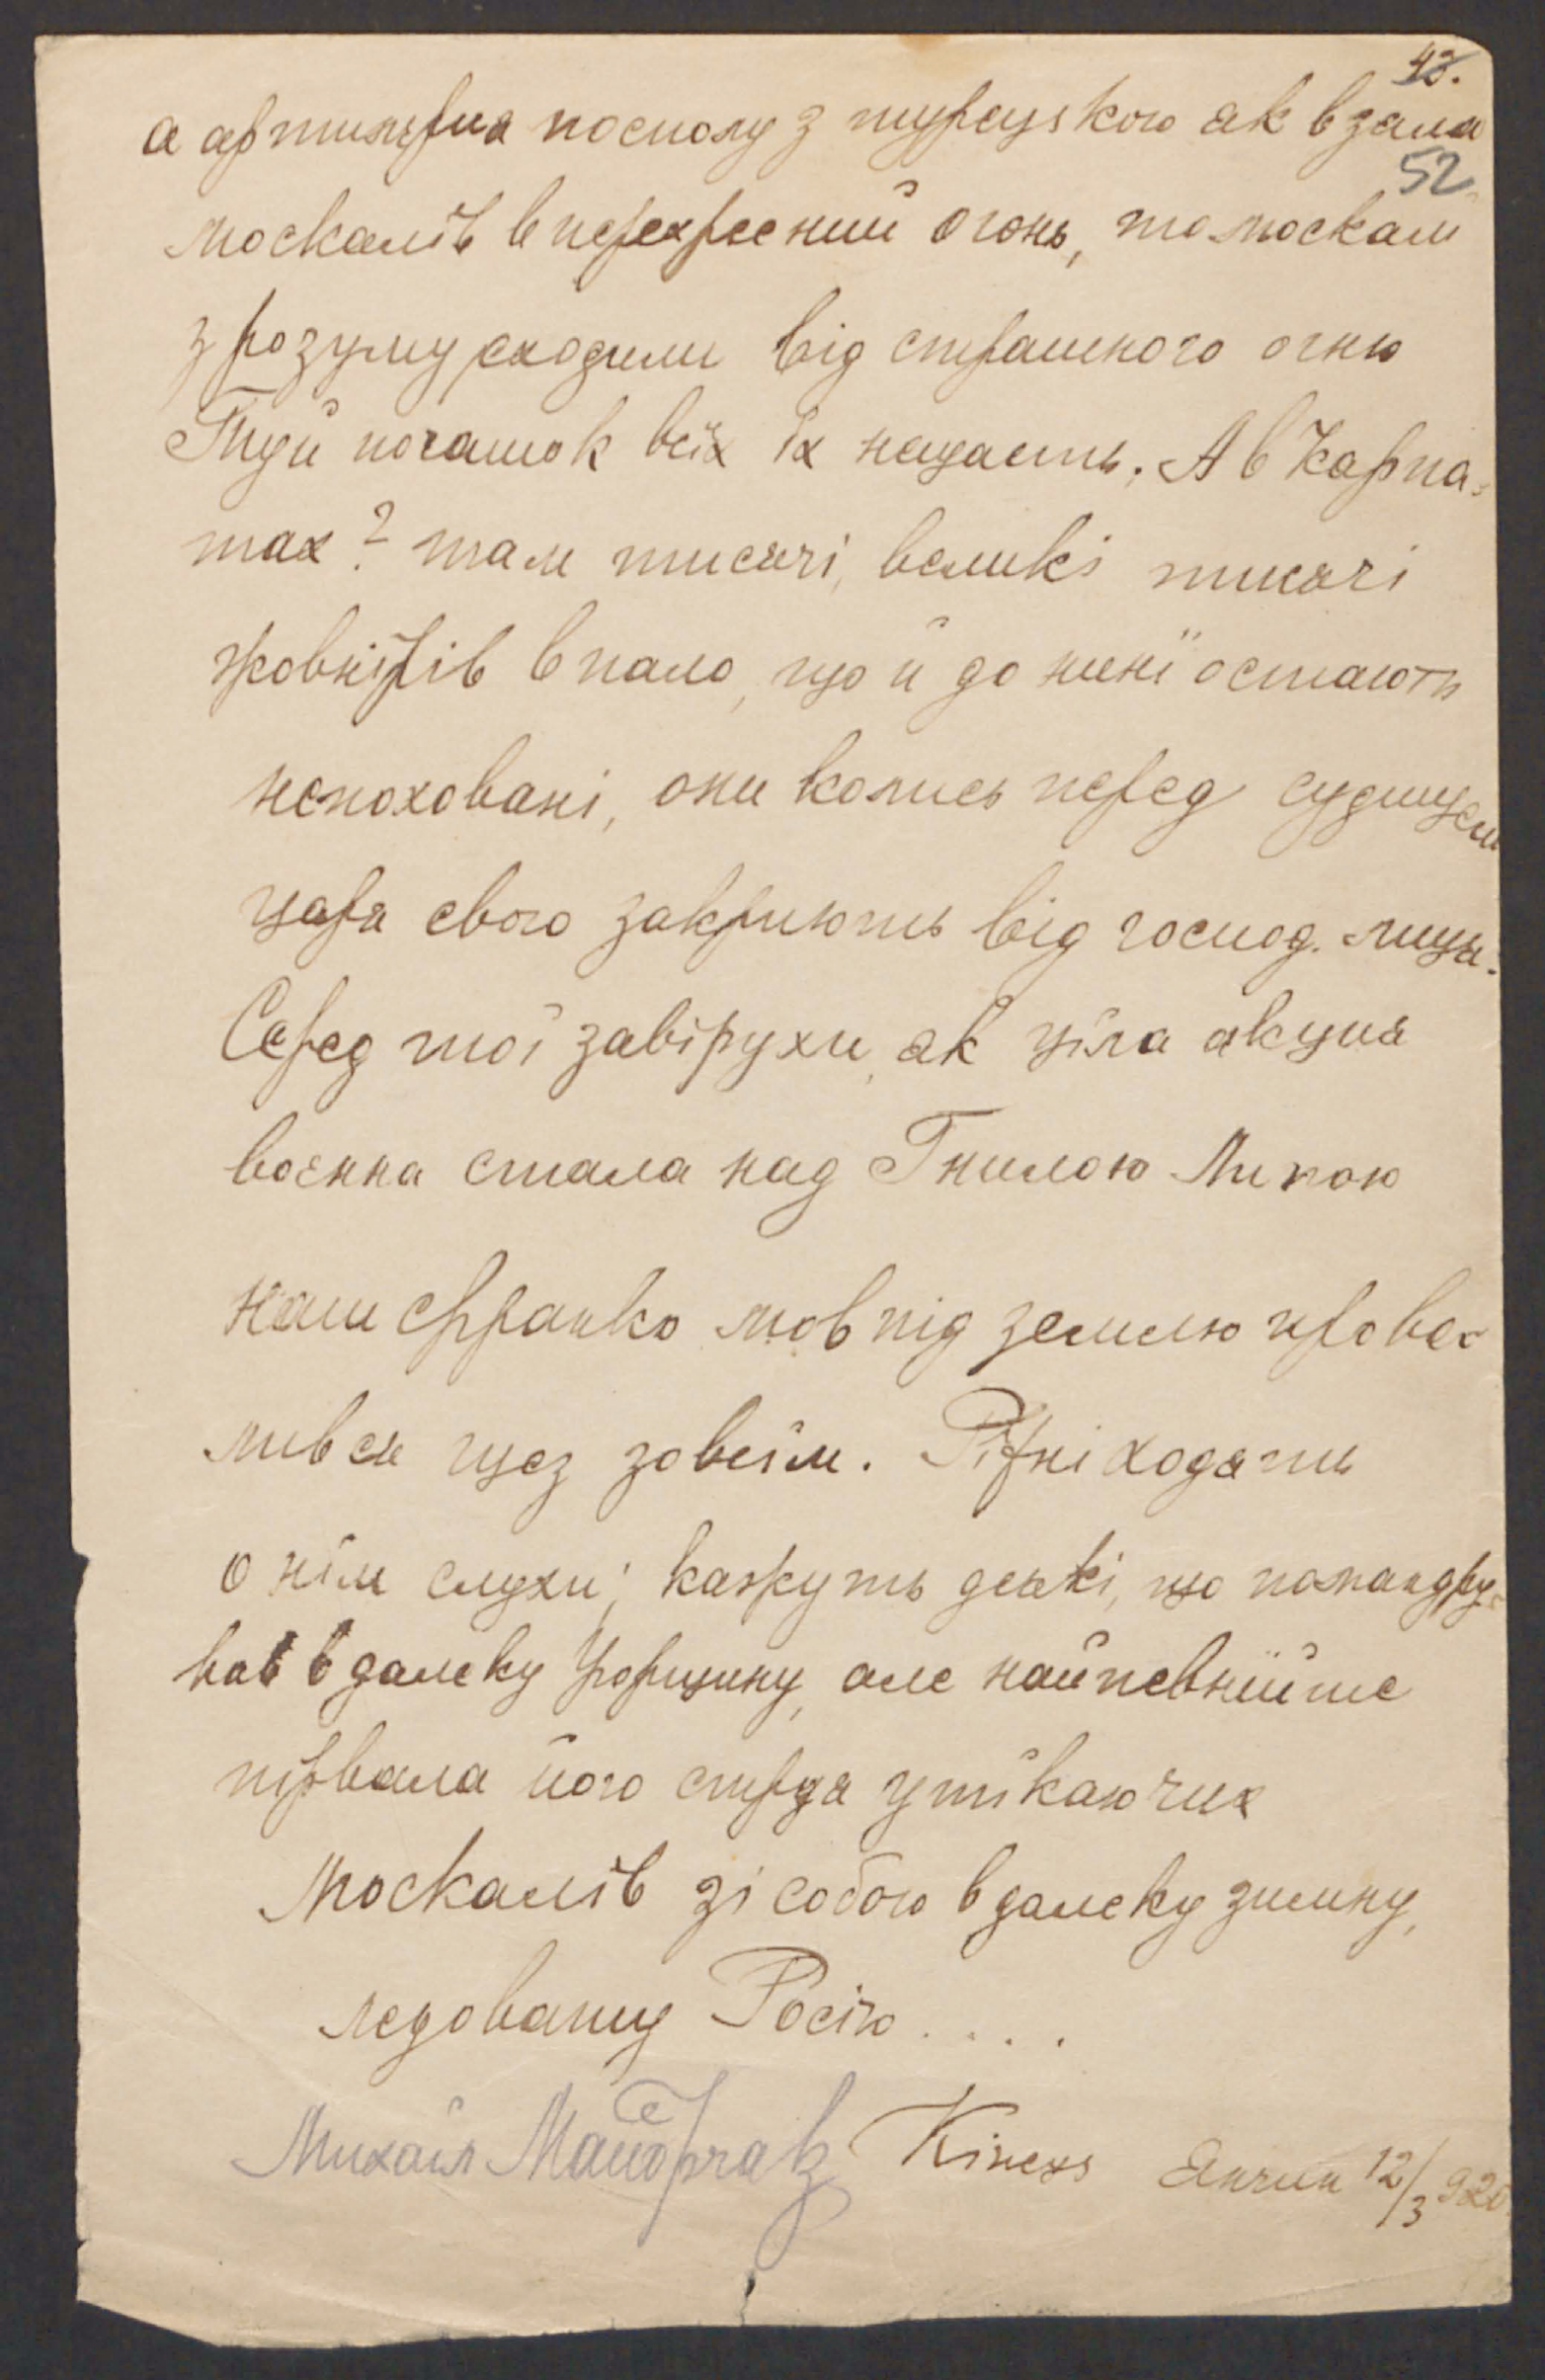 43.
а артилєрия посполу з турецкою як взяла
52
москалїв в перехресний огонь, то москалі
з розуму сходили від страшного огню
Туди початок всїх їх нещасть. А в Карпа-
тах? там тисячі, великі тисячі
жовнїрів впало, що й до нинї остають
непоховані, они колись перед судищем
царя свого закриють від господ. лиця.
Серед тої завірухи, як ціла акция
воєнна стала над Гнилою Липою
наш Франко мов під землю прова-
лився щез зовсїм. Ріжні ходять
о нїм слухи; кажуть деякі, що помандру-
вав в далеку Горщину, але найпевнїйше
пірвала його стежа утїкаючих
москалїв зі собою в далеку зимну,
ледовату Росію . . . .
Михаіл
Кінець Янчин 12/3 920